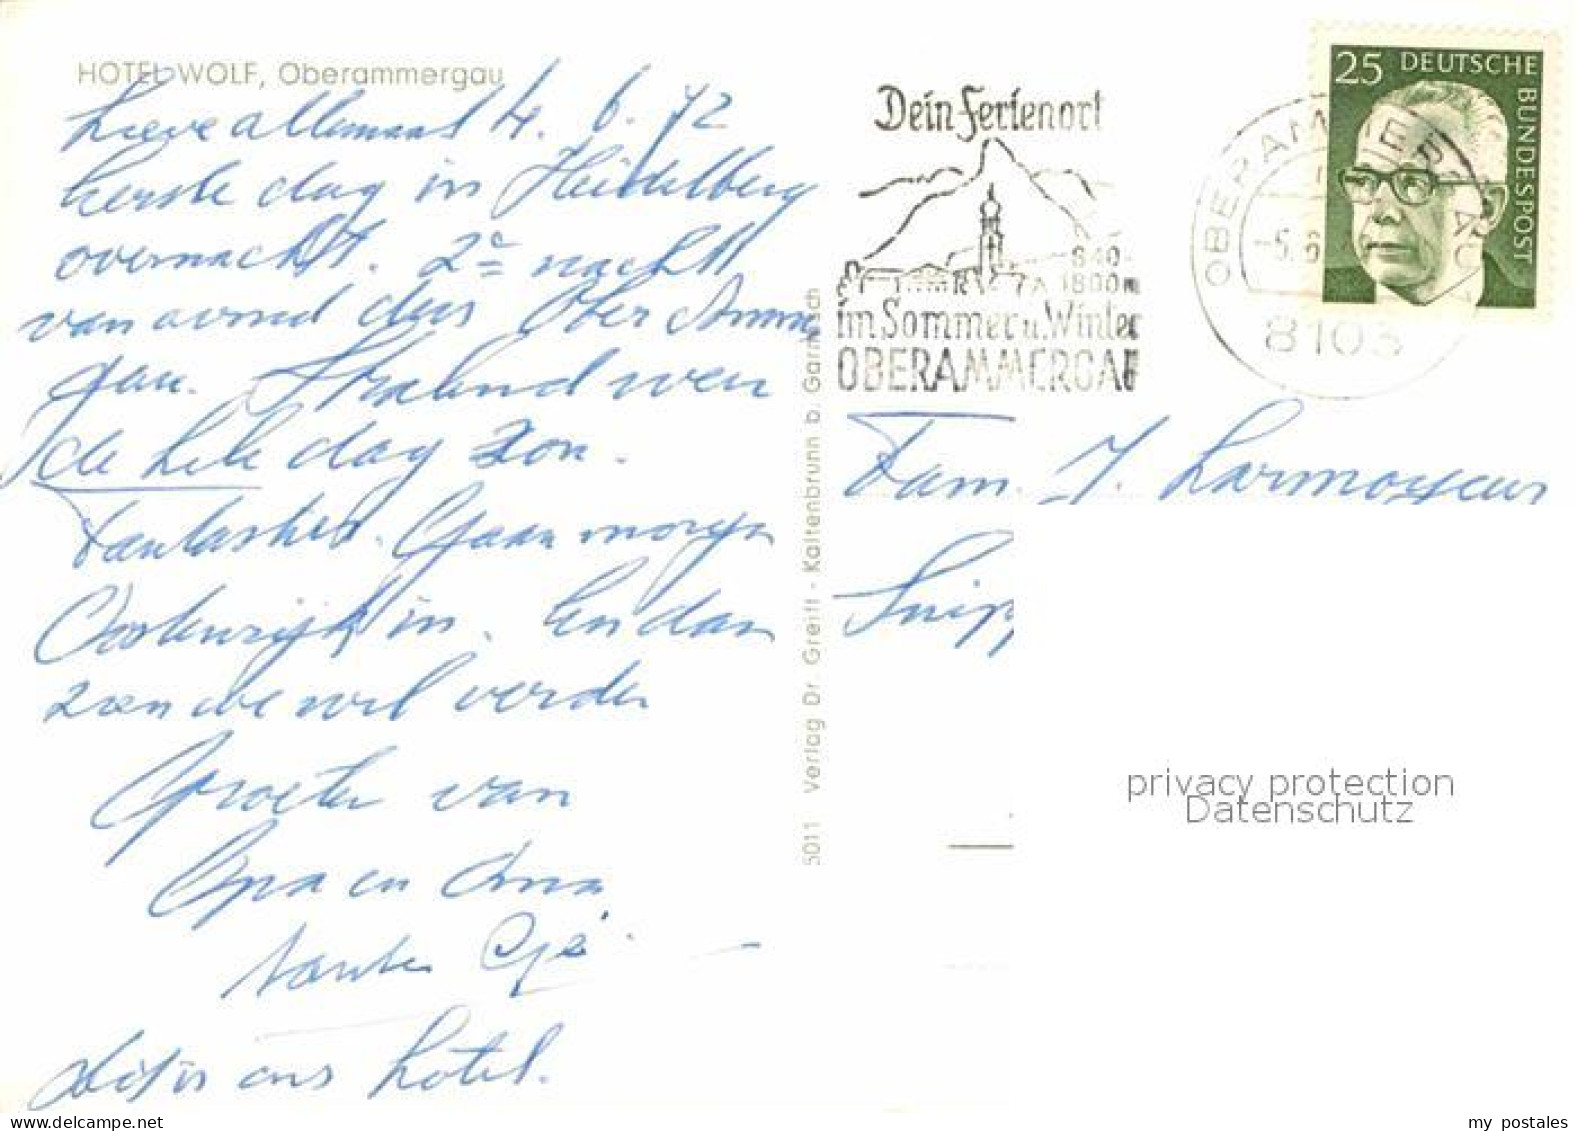 HOTEL WOLF, Oberammergau
Lieve allemaal 4. 6. 72
Eerste dag in Heidelberg
overnacht. 2e nacht
van avond dus Ober Amme
gau. Stralend weer
de hele dag zon.
Fantastisch. Gaan morgen
Oostenrijk in. En dan
zien we wel verder
Groeten van
Opa en Oma
tante
dit is ons hotel.
5011 Verlag Dr. Greiff - Kaltenbrunn b. Garmisch
Dein Ferienort
840-
1800m
im Sommer u. Winter
OBERAMMERGAU
OBERAMMERGAU
-5.6
8103
25 DEUTSCHE
BUNDESPOST
Fam. J. Larmoyeur
Snipp
privacy protection
Datenschutz
my postales